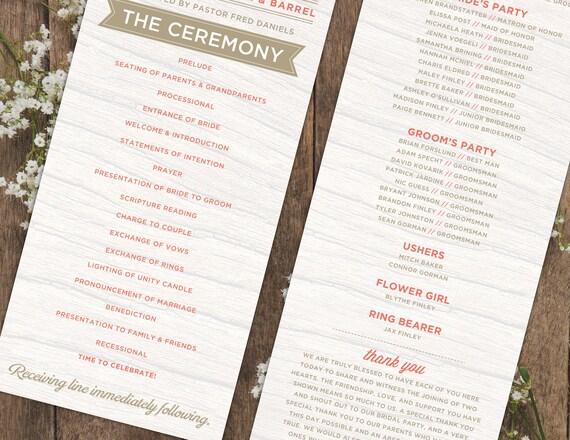 & BARREL
BY PASTOR FRED DANIELS
THE CEREMONY
PRELUDE
SEATING OF PARENTS & GRANDPARENTS
PROCESSIONAL
ENTRANCE OF BRIDE
WELCOME & INTRODUCTION
STATEMENTS OF INTENTION
PRAYER
PRESENTATION OF BRIDE TO GROOM
SCRIPTURE READING
CHARGE TO COUPLE
EXCHANGE OF VOWS
EXCHANGE OF RINGS
LIGHTING OF UNITY CANDLE
PRONOUNCEMENT OF MARRIAGE
BENEDICTION
PRESENTATION TO FAMILY & FRIENDS
RECESSIONAL
TIME TO CELEBRATE!
Receiving line immediately following.
PARTY
BRANDSTATTER // MATRON OF HONOR
ELISSA POST // MAID OF HONOR
MICHAELA HEATH // BRIDESMAID
JENNA VOEGELI // BRIDESMAID
SAMANTHA BRINING // BRIDESMAID
HANNAH MCNIEL // BRIDESMAID
CHARIS ELDRED // BRIDESMAID
MALEY FINLEY // BRIDESMAID
BRETTE BAKER // BRIDESMAID
ASHLEY O'SULLIVAN // BRIDESMAID
MADISON FINLEY // JUNIOR BRIDESMAID
PAIGE BENNETT // JUNIOR BRIDESMAID
GROOM'S PARTY
BRIAN FORSLUND // BEST MAN
ADAM SPECHT // GROOMSMAN
DAVID KOVARIK // GROOMSMAN
PATRICK JARDINE // GROOMSMAN
NIC GUESS // GROOMSMAN
BRYANT JOHNSON // GROOMSMAN
BRANDON FINLEY // GROOMSMAN
TYLER JOHNSTON // GROOMSMAN
SEAN GORMAN // GROOMSMAN
USHERS
MITCH BAKER
CONNOR GORMAN
FLOWER GIRL
BLYTHE FINLEY
RING BEARER
JAX FINLEY
thank you
WE ARE TRULY BLESSED TO HAVE EACH OF YOU HERE
TODAY TO SHARE AND WITNESS THE JOINING OF TWO
HEARTS. THE FRIENDSHIP, LOVE, AND SUPPORT YOU HAVE
SHOWN MEANS SO MUCH TO US. A SPECIAL THANK YOU
AND SHOUT OUT TO OUR BRIDAL PARTY, AND A VERY
SPECIAL THANK YOU TO OUR PARENTS WHO HAVE MADE
THIS DAY POSSIBLE AND AN ABSOLUTE
TRUE. WE WOULD ALSO
ONES